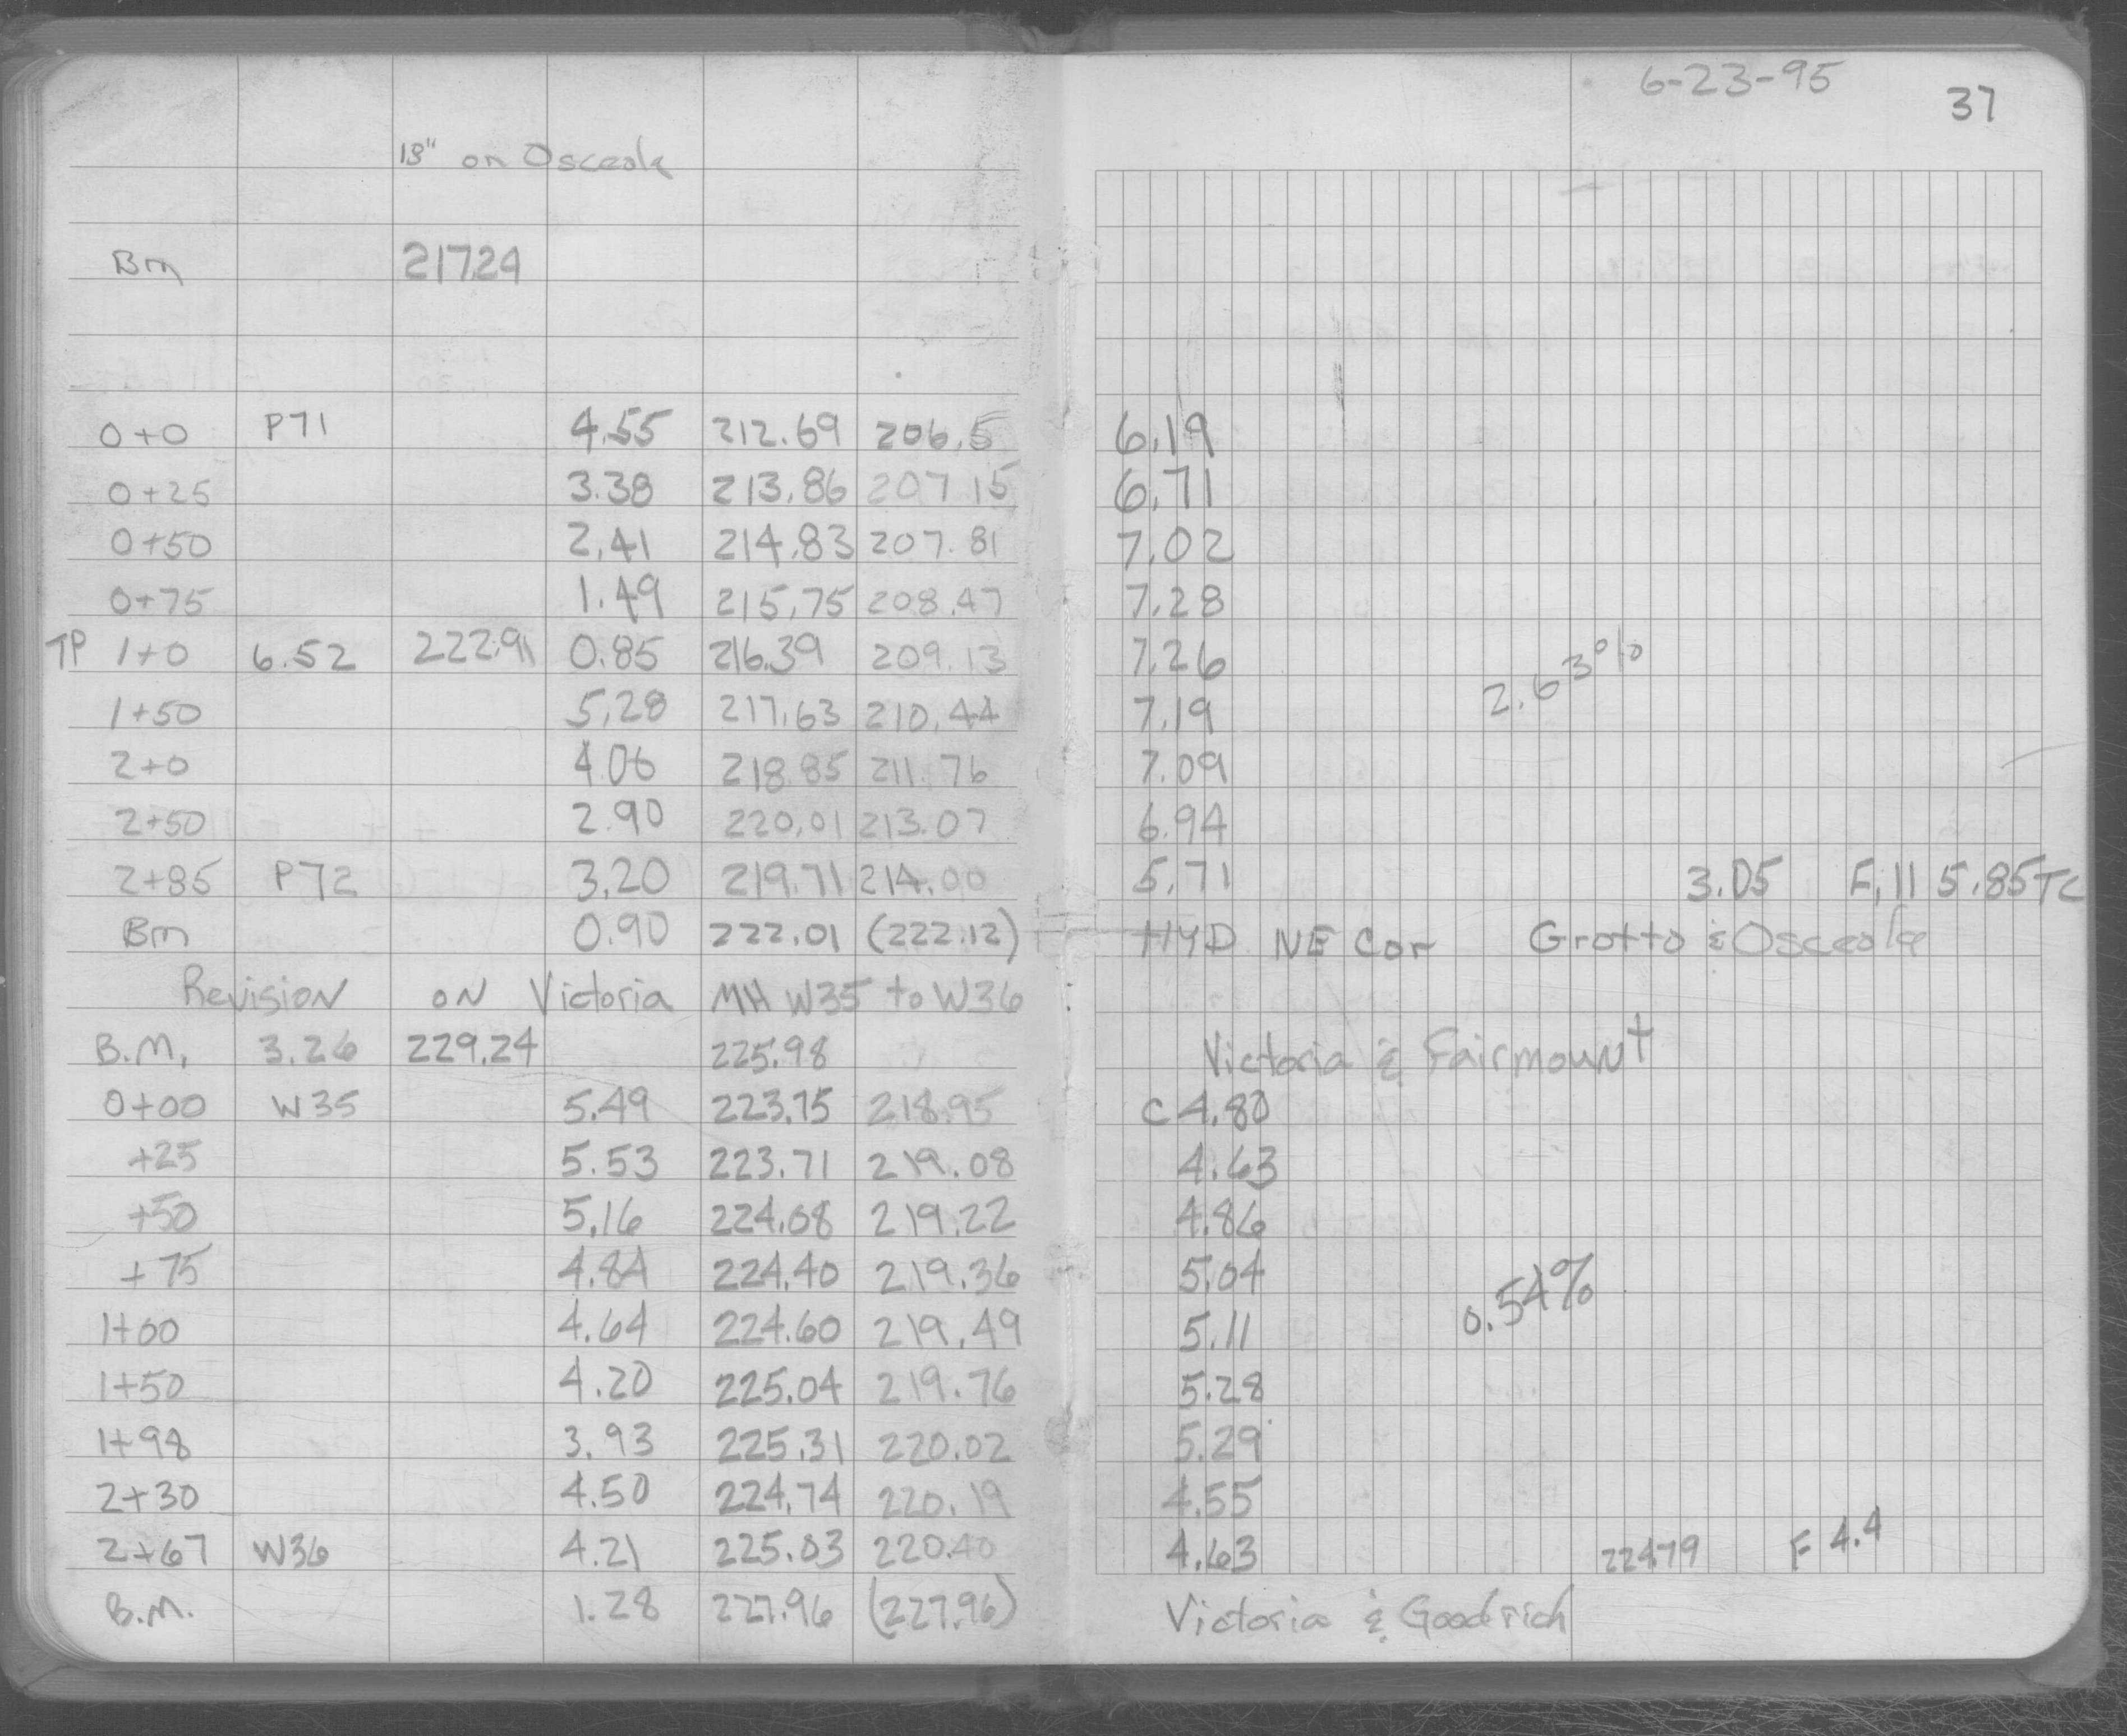 6-23-95
37
18" on Osceola
Bm 217.24
0+0 P71 4.55 212.69 206.5 6.19
0+25 3.38 213.86 207.15 6.71
0+50 2.41 214.83 207.81 7.02
0+75 1.49 215.75 208.47 7.28
TP 1+0 6.52 222.91 0.85 216.39 209.13 7.26
2.63%
1+50 5.28 217.63 210.44 7.19
2+0 4.06 218.85 211.76 7.09
2+50 2.90 220.01 213.07 6.94
2+85 P72 3.20 219.71 214.00 5.71 3.05 F.11 5.85TC
Bm 0.90 222.01 (222.12) HYD NE Cor Grotto & Osceola
Revision ON Victoria MH W35 to W36
B.M. 3.26 229.24 225.98 Victoria & Fairmount
0+00 W35 5.49 223.75 218.95 C 4.80
+25 5.53 223.71 219.08 4.63
+50 5.16 224.08 219.22 4.86
+75 4.84 224.40 219.36 5.04
0.54%
1+00 4.64 224.60 219.49 5.11
1+50 4.20 225.04 219.76 5.28
1+98 3.93 225.31 220.02 5.29
2+30 4.50 224.74 220.19 4.55
2+67 W36 4.21 225.03 220.40 4.63 224.79 F 4.4
B.M. 1.28 227.96 (227.96) Victoria & Goodrich